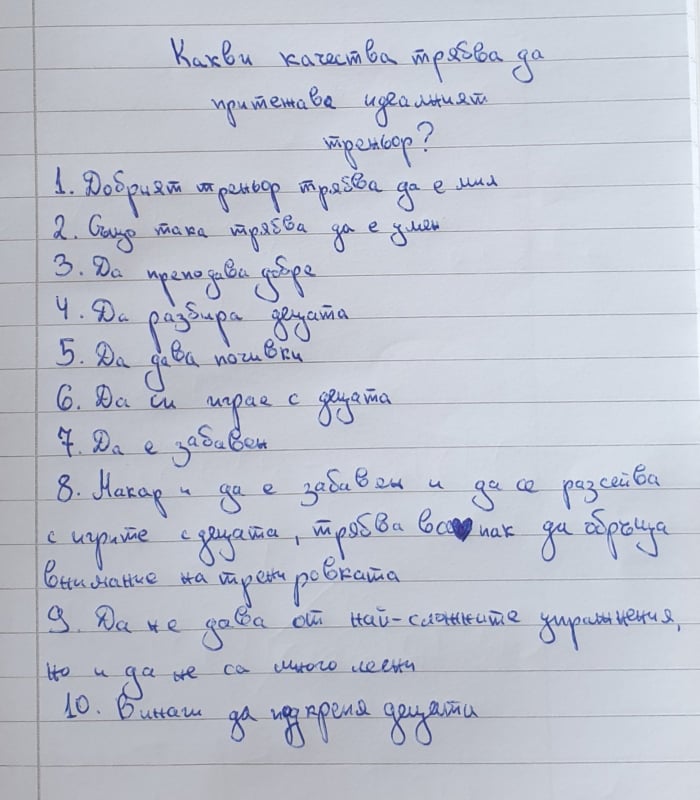 Какви качества трябва да
притежава идеалният
треньор?
1. Добрият треньор трябва да е мил
2. Също така трябва да е умен
3. Да преподава добре
4. Да разбира децата
5. Да дава почивки
6. Да си играе с децата
7. Да е забавен
8. Макар и да е забавен и да се разсейва
с игрите с децата, трябва все пак да обръща
внимание на тренировката
9. Да не дава от най-сложните упражнения,
но и да не са много лесни
10. Винаги да подкрепя децата